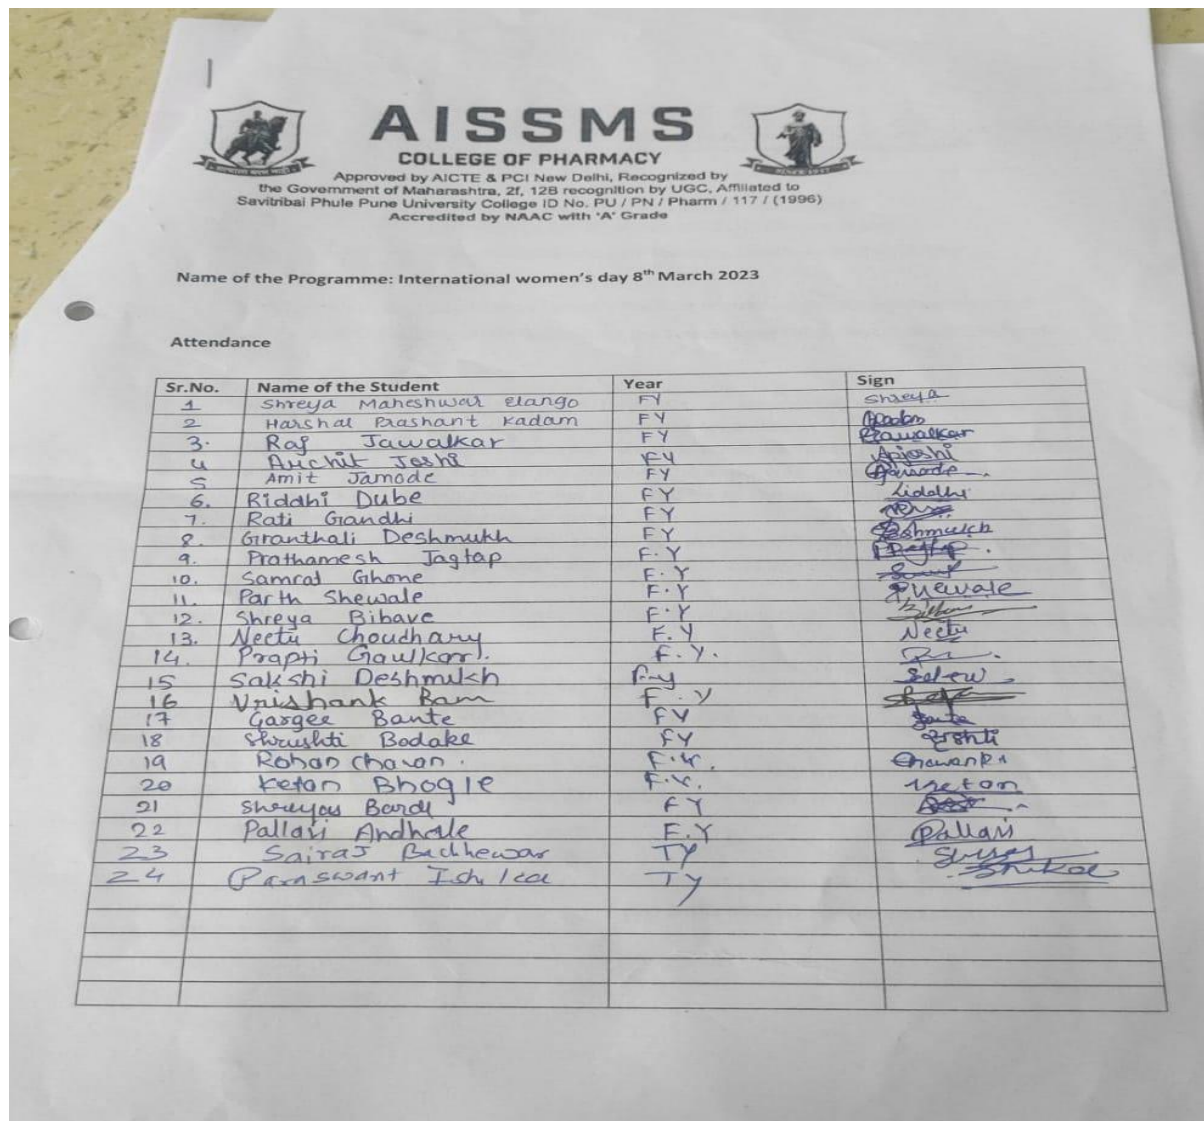 AISSMS
COLLEGE OF PHARMACY
Approved by AICTE & PCI New Delhi, Recognized by
the Government of Maharashtra, 2f, 12B recognition by UGC, Affiliated to
Savitribai Phule Pune University College ID No. PU / PN / Pharm / 117 / (1996)
Accredited by NAAC with 'A' Grade
Name of the Programme: International women's day 8th March 2023
Attendance
Sr.No. Name of the Student Year Sign
1 Shreya Maheshwar elango FY Shreya
2 Harshal Prashant Kadam FY
3. Raj Jawalkar FY RJawalkar
4 Archit Joshi FY Apjoshi
5 Amit Jamode FY
6. Riddhi Dube FY
7. Rati Gandhi FY
8. Granthali Deshmukh FY Deshmukh
9. Prathamesh Jagtap F.Y
10. Samrat Ghone F.Y
11. Parth Shewale F.Y
12. Shreya Bibave F.Y
13. Neetu Choudhary F.Y Neetu
14. Prapti Gawlkar. F.Y.
15 Sakshi Deshmukh F.y
16 Vrishank Ram F.Y
17 Gargee Bante FY
18 Shrushti Bodake FY
19 Rohan chavan. F.Y. Chavan
20 Ketan Bhogle F.Y. Ketan
21 Shreyas Barde FY
22 Pallavi Andhale F.Y Pallavi
23 Sairaj TY
24 Ishika TY